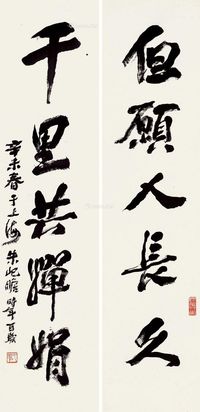 但願人長久
千里共嬋娟
辛未春于上海朱屺瞻時年百歲